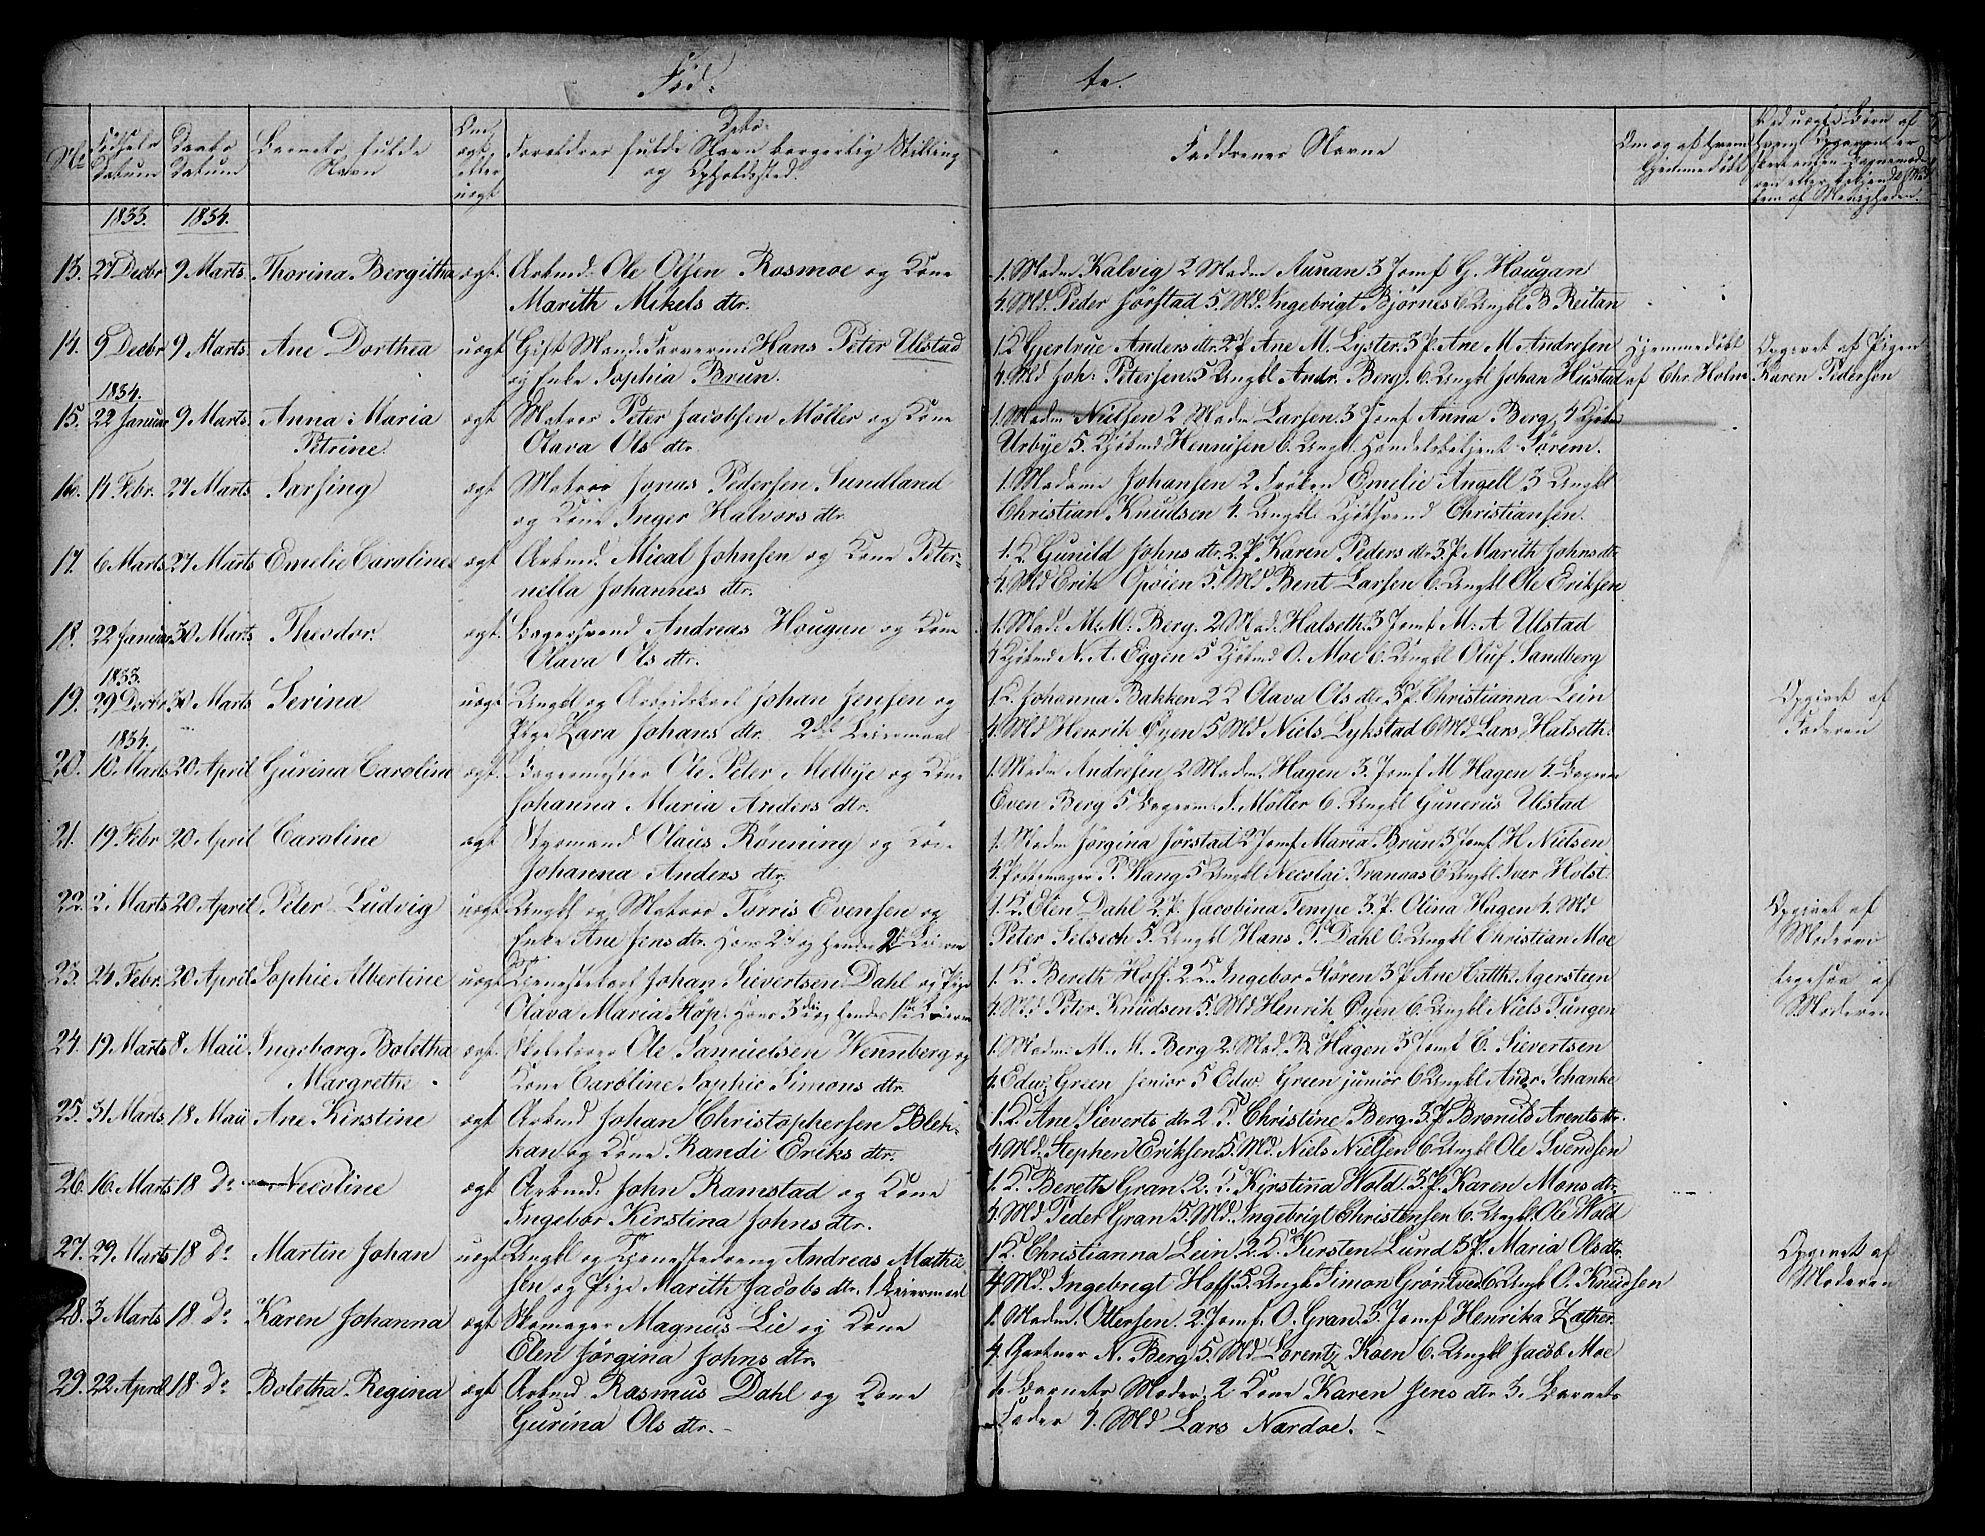 Fød-
te.
No Fødsels Datum Daabs Datum Barnets fulde Navn Om ægte eller uægte Forældres fulde Navn Dito borgerlig Stilling og Opholdssted. Faddrenes Navne Om og af hvem hjemmedøbt
1833. 1834.
13. 27 Decbr 9 Marts Thorina Bergitha ægt Arbmd. Ole Olsen Rosmoe og Kone
Marith Mikels dtr.
1. Madm Kalvig 2 Madm Aunan 3 Jomf G. Hougan
4. Md. Peder Jørstad 5. Md. Ingebrigt Bjørnes 6. Ungkl B. Reitan
14. 9 Decbr 9 Marts Ane Dorthea uægt Gift Mand Farverm. Hans Peter Ulstad
og Enke Sophia Brun.
1 K Gjertrue Anders dtr. 2 P. Ane M. Lyster. 3 P. Ane M Andresen Hjemmedøbt Opgivet af Pigen
4. Md Joh: Petersen. 5 Ungkl Andr. Berg. 6. Ungkl Johan Hustad af Chr. Holm Karen Pedersen
1834.
15. 22 Januar 9 Marts Anna Maria ægt Matros Peter Jacobsen Møller og Kone
Petrine Olava Ols dtr.
1. Madm Nielsen 2. Madm Larsen. 3 Jomf Anna Berg, 4 Kjøbm
Urbye 5. Kjøbmd Hennisen 6. Ungkl. Handelsbetjent Sørem.
16. 14 Febr. 27 Marts Sarsing ægt Matros Jonas Pedersen Sundland
og Kone Inger Halvors dtr.
1. Madame Johansen 2 Frøken Emelie Angell 3 Ungkl
Christian Knudsen 4. Ungkl. Christiansen.
17. 6 Marts 27 Marts Emelie Caroline ægt Arbmd. Mical Johnsen og Kone Peter-
nella Johannes dtr.
1. K Gunild Johns dtr. 2. P. Karen Peders dtr 3. P. Marith Johns dtr
4. Md Erik Opøien 5. Md Bent Larsen 6. Ungkl Ole Eriksen
18. 22 Januar 30 Marts Theodor. ægt. Bagersvend Andreas Hougan og Kone
Olava Ols dtr.
1. Mad: M: M: Berg. 2 Mad. Halseth. 3 Jomf M: A Ulstad
4 Kjøbmd N. A. Eggin 5 Kjøbmd O. Moe 6. Ungkl Oluf Sandberg
1833.
19. 29 Decbr 30 Marts Serina uægt Ungkl og Arbeidskarl Johan Jensen og
Pige Zara Johans dtr. 2det Leiermaal
1 K. Johanna Bakken 2 K Olava Ols dtr 3 P. Christianna Lein Opgivet af
4. Md Henrik Øyen 5 Md Niels Lykstad 6 Md Lars Halseth. Faderen
1834.
20. 10. Marts 20 April Gurina Caroline ægt. Bagermester Ole Peter Melbye og Kone
Johanna Maria Anders dtr.
1. Madm Andresen 2. Madm. Hagen 3. Jomf M Hagen 4. Bagerm
Even Berg 5 Bagerm. J. Møller 6. Ungkl Gunerus Ulstad
21. 19 Febr 20 April Caroline ægt Styrmand Olaus Rønning og Kone
Johanna Anders dtr.
1. Madm Jørgina Jørstad 2 Jomf Maria Brun 3 Jomf H. Nielsen
4 Pottemager P. Wang 5 Ungkl Necolai Tranaas 6 Ungkl Iver Holst.
22. 2. Marts 20 April Peter Ludvig uægt Ungkl og Matros Tørris Evensen og
Enke Ane Jens dtr. Hans 2det og hendes 2det Leierm
1. K. Elen Dahl 2. P. Jacobina Tempe 3. P. Olina Hagen 4. Md Opgivet af
Peter Selsech 5. Ungkl Hans P. Dahl 6. Ungkl Christian Moe Moderen
23. 24 Febr. 20 April Sophie Albertine uægt Tjenestekarl Johan Sievertsen Dahl og Pige
Olava Maria Høp. Hans 3die og hendes 1ste Leierm
1. K. Bereth Hoff. 2. K. Ingebor Støren 3 P. Ane Cathr. Agersteen ligesaa af
4. Md Peter Knudsen 5. Md Henrik Øyen 6. Ungkl Niels Tungen Moderen
24. 19 Marts 8 Maii Ingeborg Boletha ægt. Skolelærer Ole Samuelsen Wennberg og
Margrethe Kone Caroline Sophie Simons dtr.
1. Madm. M. M. Berg 2. Mad. B. Hagen 3 Jomf C. Sievertsen
4. Edw. Green senior 5 Edw. Green junior 6 Ungkl Andr. Schanke
25. 31 Marts 18 Maii Ane Kirstine ægt Arbmd Johan Christophersen Blek-
kan og Kone Randi Eriks dtr.
1. K. Ane Sieverts dtr 2 K. Christine Berg. 3 P. Bronild Arents dtr.
4. Md. Stephen Eriksen 5. Md. Niels Nielsen 6 Ungkl Ole Svendsen
26. 16. Marts 18 Do Necoline ægt Arbmd. John Ramstad og Kone
Ingebor Kirstina Johns dtr.
1. K. Bereth Gran. 2. K. Kirstina Hold. 3. P. Karen Mons dtr.
4. Md. Peder Gran 5. Md. Ingebrigt Christensen 6. Ungkl. Ole Hold
27. 29. Marts 18 Do Martin Johan uægt Ungkl og Tjenestedreng Andreas Mathie
sen og Pige Marith Jacobs dtr. 1 Leiermaal
1 K. Christianna Lein. 2. K. Kirsten Lund 3 P. Maria Ols dtr. Opgivet af
4 Md. Ingebrigt Hoff. 5. Ungkl Simon Grøntved 6. Ungkl O. Knudsen Moderen
28. 3 Marts 18. Do Karen Johanna ægt Skomager Magnus Lie og Kone
Elen Jørgina Johns dtr.
1. Madm. Ottersen. 2. Jomf. O. Gran. 3. Jomf Henrika Zather.
4. Gartner N. Berg 5. Md Lorentz Koen 6. Ungkl Jacob Moe
29. 22 April 18. Do Boletha Regina ægt Arbmd. Rasmus Dahl og Kone
Gurina Ols dtr.-
1. Barnets Moder. 2 Kone Karen Jens dtr 3. Barnets
Fader 4. Md Lars Nardoe.-